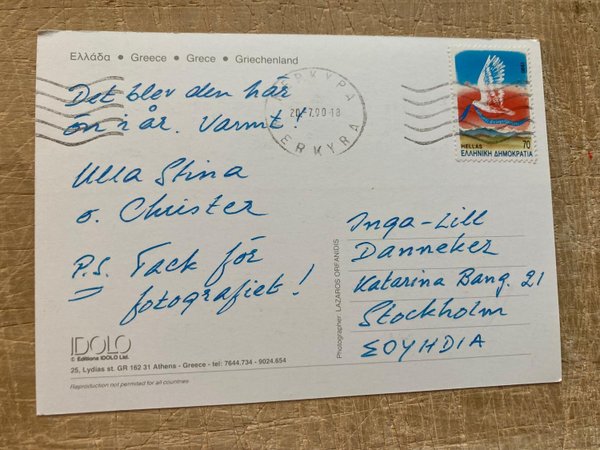 Ελλάδα • Greece • Grece • Griechenland
Det blev den här
ön i år. Varmt!
Ulla Stina
o. Christer
P.S. Tack för
fotografiet!
ΚΕΡΚΥΡΑ
20.-7.90-18
KERKYRA
HELLAS 70
ΕΛΛΗΝΙΚΗ ΔΗΜΟΚΡΑΤΙΑ
Inga-Lill
Danneker
Katarina Bang. 21
Stockholm
ΣΟΥΗΔΙΑ
Photographer: LAZAROS ORFANIDIS
IDOLO
© Editions IDOLO Ltd.
25, Lydias st. GR 162 31 Athens - Greece - tel: 7644.734 - 9024.654
Reproduction not permited for all countries